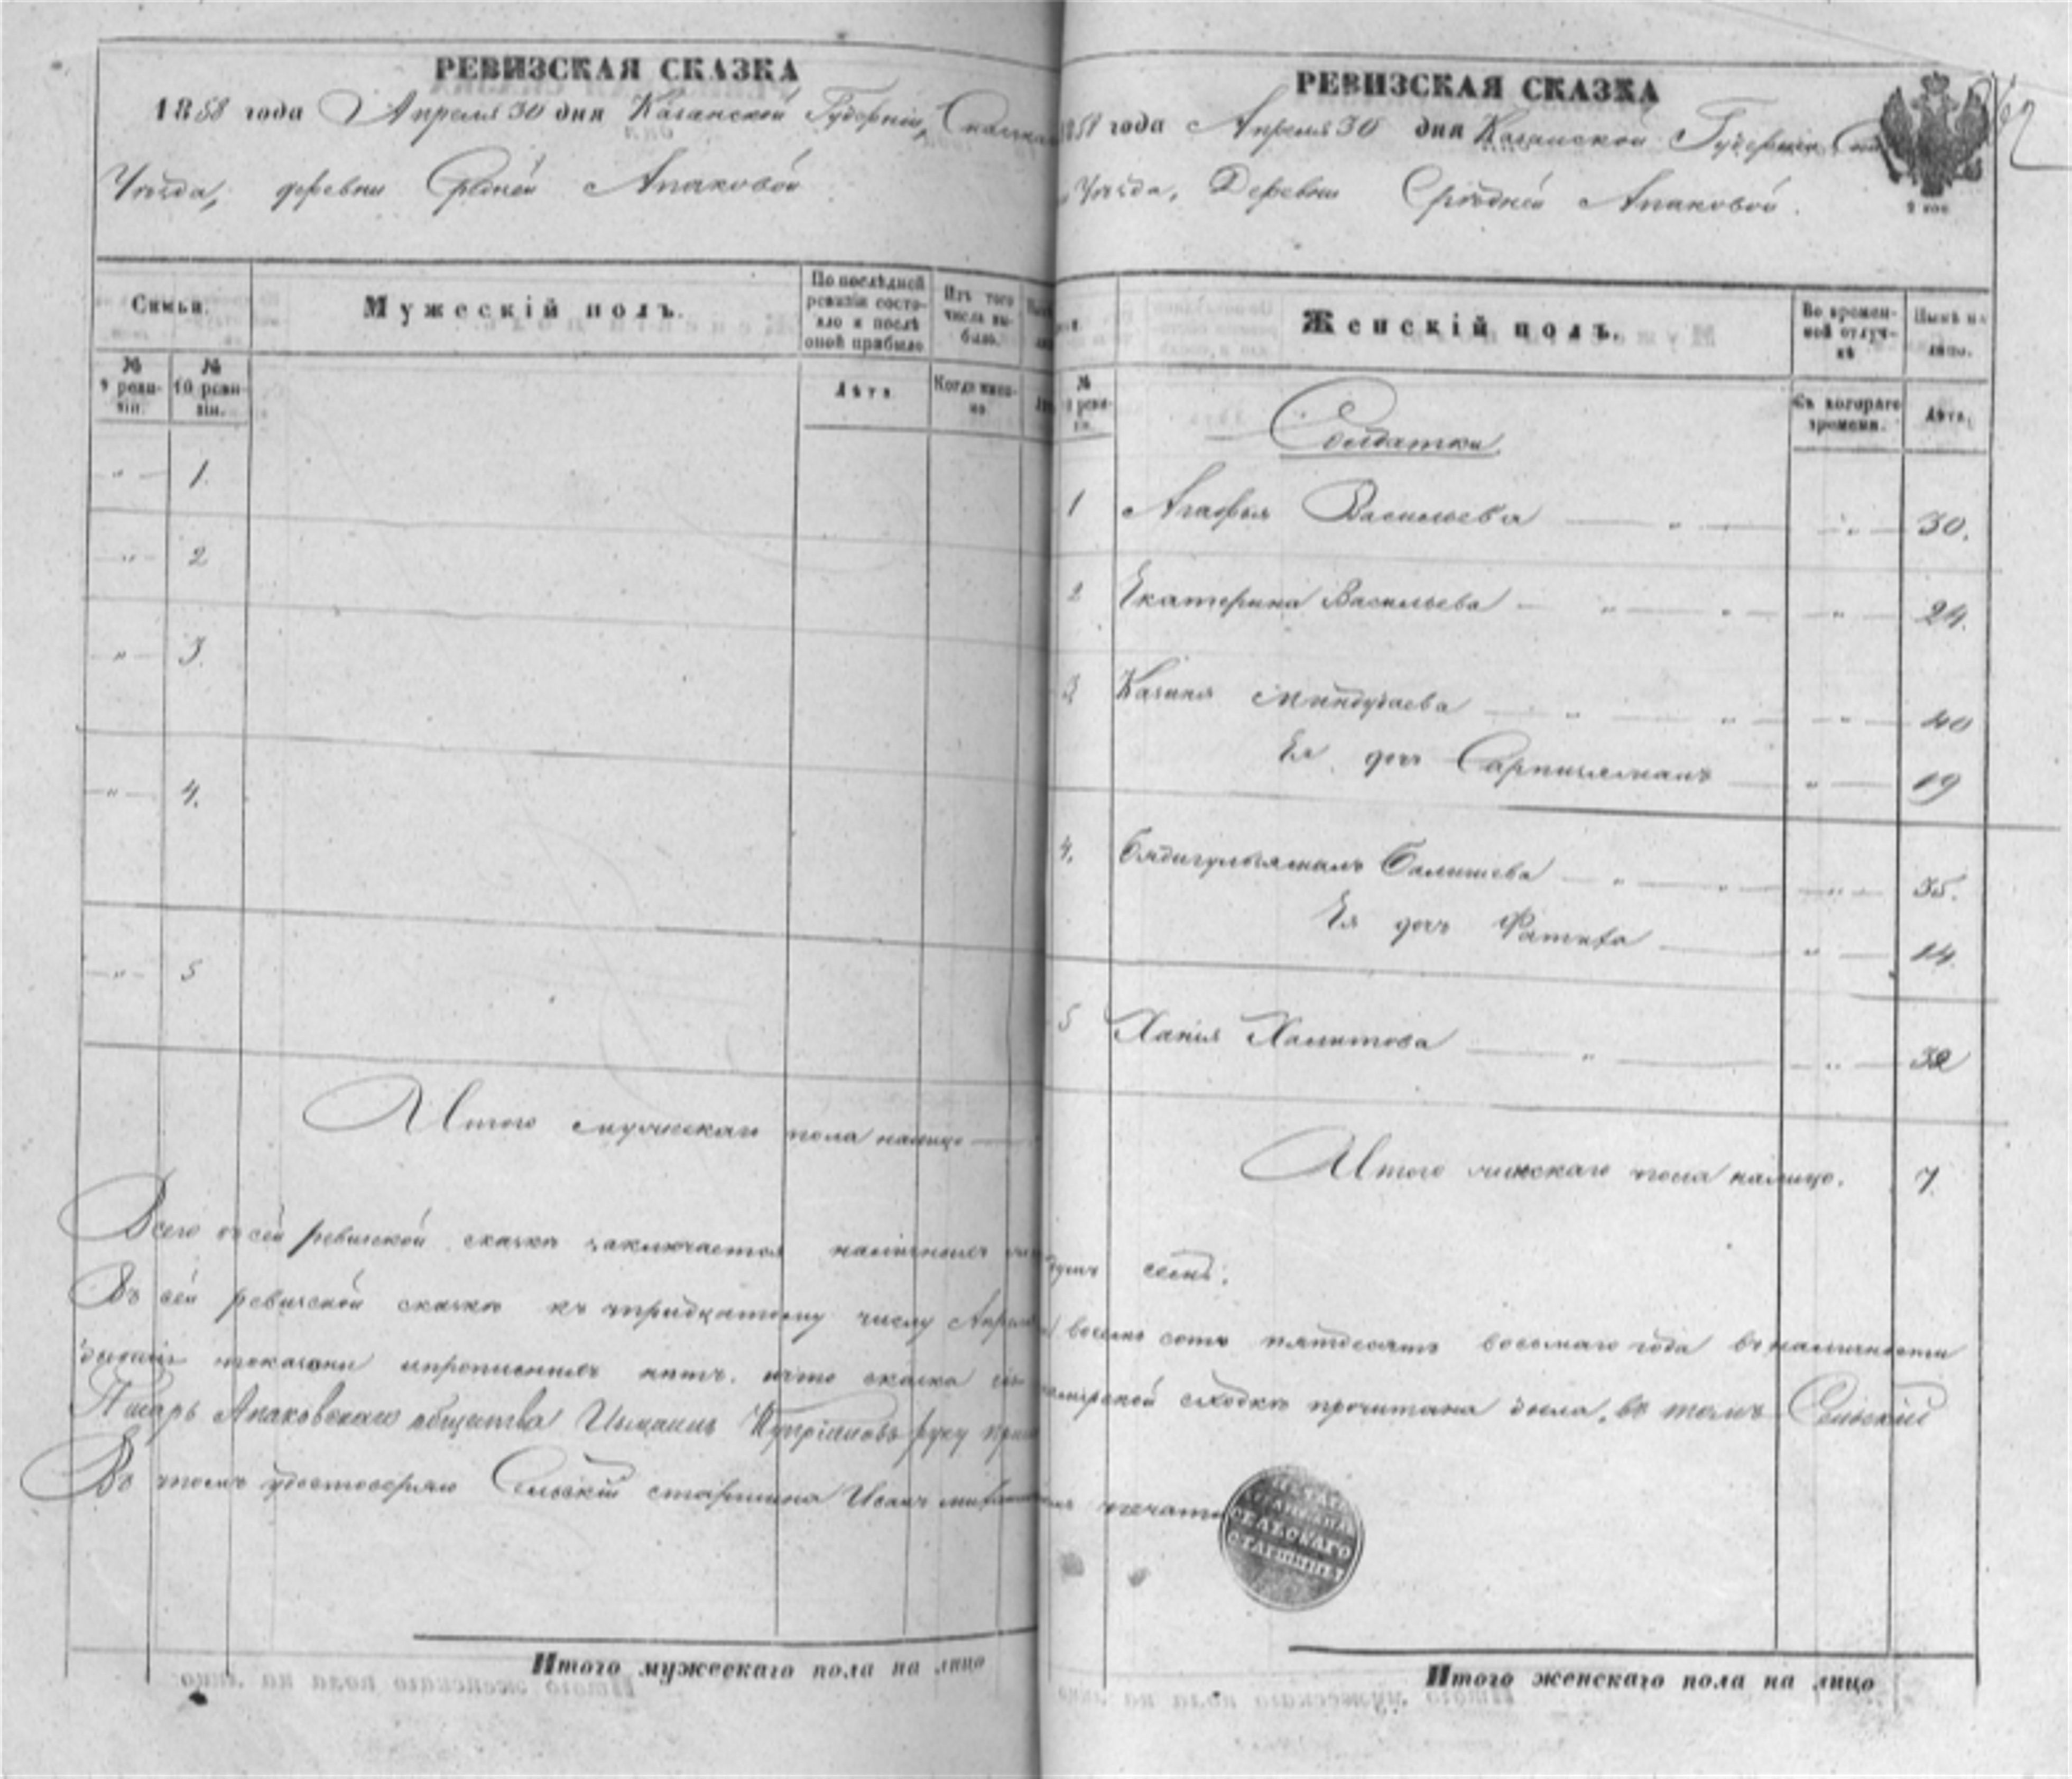 РЕВИЗСКАЯ СКАЗКА
1858 года Апреля 30 дня Казанской Губерніи,
Уѣзда, деревни Средней Апаковой
Семьи.
Мужескій полъ.
По послѣдней ревизіи состояло и послѣ оной прибыло
Изъ того числа выбыло.
№ 9 ревизіи.
№ 10 ревизіи.
Лѣта
Когда именно
" 1.
" 2
" 3.
" 4.
" 5
Итого мужескаго пола налицо
Всего въ сей ревизской сказкѣ заключается наличныхъ
Въ сей ревизской сказкѣ къ тридцатому числу Апреля
показаны и прописныхъ нѣтъ. и что сказка
Писарь Апаковскаго общества Купріяновъ руку
Въ томъ удостоверяю Сельскій старшина Иванъ
Итого мужескаго пола на лицо
РЕВИЗСКАЯ СКАЗКА
1858 года Апреля 30 дня Казанской Губерніи
Уѣзда, Деревни Средней Апаковой.
2 коп
Женскій полъ.
Во временной отлучкѣ
Нынѣ на лицо.
№ ревизіи.
Съ котораго времени.
Лѣта.
Солдатки
1 Агафья Васильева " " 30.
2 Екатерина Васильева " " " 24.
3 Миндубаева " " " 40
Ея дочь " 19
4. Бадигульямалъ " " " 35.
Ея дочь Фатиха " 14
5 Хания Хамитова " " 32
Итого женскаго пола налицо. 7.
душъ семь.
восемь сотъ пятдесятъ восьмаго года въ наличности
мирской сходкѣ прочитана была, въ томъ Сельскій
печать
СЕЛЬСКАГО
СТАРШИНЫ
Итого женскаго пола на лицо